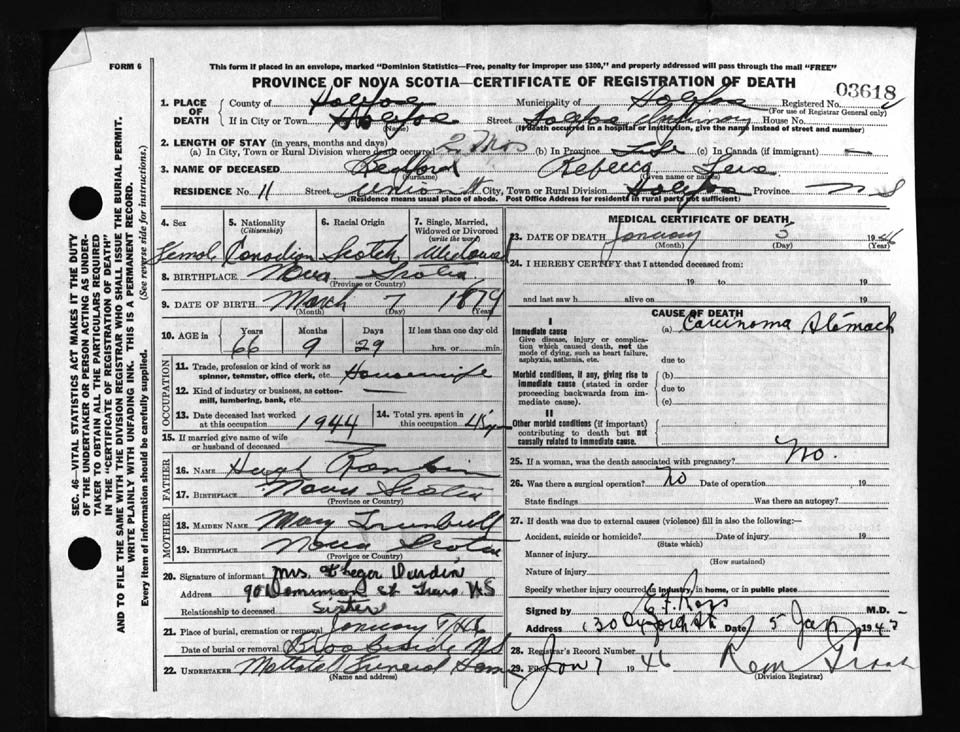 FORM 6
This form if placed in an envelope, marked "Dominion Statistics—Free, penalty for improper use $300," and properly addressed will pass through the mail "FREE"
PROVINCE OF NOVA SCOTIA—CERTIFICATE OF REGISTRATION OF DEATH
03618
1. PLACE OF DEATH
County of Halifax Municipality of Halifax Registered No.
(For use of Registrar General only)
If in City or Town Halifax Street Halifax Infirmary House No.
(Name) (If death occurred in a hospital or institution, give the name instead of street and number)
2. LENGTH OF STAY (in years, months and days)
(a) In City, Town or Rural Division where death occurred 2 Mos (b) In Province Life (c) In Canada (if immigrant) —
3. NAME OF DECEASED Rebecca
(Surname) (Given name or names)
RESIDENCE No. 11 Street Union St City, Town or Rural Division Halifax Province N S
(Residence means usual place of abode. Post Office Address for residents in rural parts not sufficient)
4. Sex 5. Nationality (Citizenship) 6. Racial Origin 7. Single, Married, Widowed or Divorced (write the word)
Female Canadian Scotch Widowed
8. BIRTHPLACE Nova Scotia
(Province or Country)
9. DATE OF BIRTH March 7 1879
(Month) (Day) (Year)
10. AGE in Years Months Days If less than one day old
66 9 29 hrs. or min.
OCCUPATION
11. Trade, profession or kind of work as spinner, teamster, office clerk, etc. Housewife
12. Kind of industry or business, as cotton-mill, lumbering, bank, etc. —
13. Date deceased last worked at this occupation 1944
14. Total yrs. spent in this occupation
15. If married give name of wife or husband of deceased —
FATHER
16. NAME Hugh Rankin
17. BIRTHPLACE Nova Scotia
(Province or Country)
MOTHER
18. MAIDEN NAME Mary Trumbull
19. BIRTHPLACE Nova Scotia
(Province or Country)
20. Signature of informant Mrs.
Address 90 Dominion St Truro NS
Relationship to deceased Sister
21. Place of burial, cremation or removal January
Date of burial or removal Brookside NS
22. UNDERTAKER Mattatall Funeral Home
(Name and address)
MEDICAL CERTIFICATE OF DEATH
23. DATE OF DEATH January 5 1946
(Month) (Day) (Year)
24. I HEREBY CERTIFY that I attended deceased from:
19 to 19
and last saw h alive on 19
CAUSE OF DEATH
I
Immediate cause (a) Carcinoma Stomach
Give disease, injury or complication which caused death, not the mode of dying, such as heart failure, asphyxia, asthenia, etc.
due to
Morbid conditions, if any, giving rise to immediate cause (stated in order proceeding backwards from immediate cause). (b)
due to
(c)
II
Other morbid conditions (if important) contributing to death but not causally related to immediate cause.
25. If a woman, was the death associated with pregnancy? No.
26. Was there a surgical operation? No Date of operation 19
State findings Was there an autopsy?
27. If death was due to external causes (violence) fill in also the following:—
Accident, suicide or homicide? Date of injury 19
(State which)
Manner of injury
(How sustained)
Nature of injury
Specify whether injury occurred in industry, in home, or in public place
Signed by Ross M.D.
Address Date 5 Jan 1945
28. Registrar's Record Number
29. Filed Jan 7 1946
(Division Registrar)
SEC. 46—VITAL STATISTICS ACT MAKES IT THE DUTY OF THE UNDERTAKER OR PERSON ACTING AS UNDERTAKER TO OBTAIN ALL THE PARTICULARS REQUIRED IN THE "CERTIFICATE OF REGISTRATION OF DEATH"
AND TO FILE THE SAME WITH THE DIVISION REGISTRAR WHO SHALL ISSUE THE BURIAL PERMIT.
WRITE PLAINLY WITH UNFADING INK. THIS IS A PERMANENT RECORD.
Every item of information should be carefully supplied. (See reverse side for instructions.)